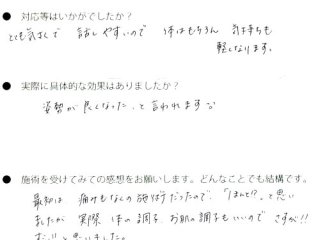 ● 対応等はいかがでしたか？
とても気さくで 話しやすいので 体はもちろん 気持ちも
軽くなります。
● 実際に具体的な効果はありましたか？
姿勢が良くなった、と言われます
● 施術を受けてみての感想をお願いします。どんなことでも結構です。
最初は 痛みもなくの施術だったので、「ほんと!?」と思い
ましたが 実際 体の調子、お肌の調子もいいので さすが!!
と思いました。